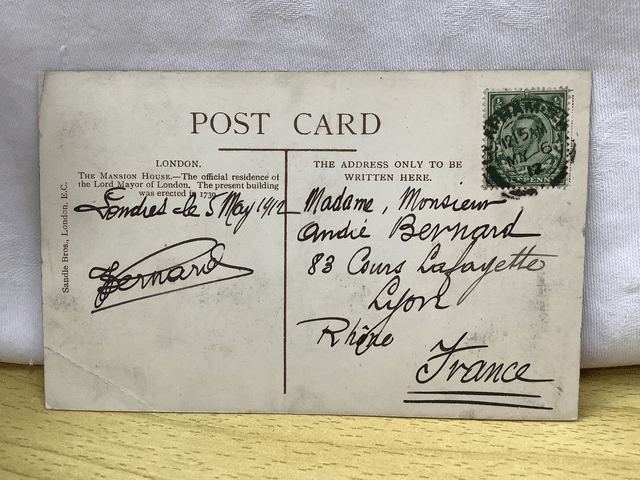 POST CARD
LONDON.
THE MANSION HOUSE.—The official residence of
the Lord Mayor of London. The present building
was erected in 1739-
Londres le 5 May 1912
Bernard
THE ADDRESS ONLY TO BE
WRITTEN HERE.
Madame, Monsieur
André Bernard
83 Cours Lafayette
Lyon
Rhône
France
Sandle Bros., London, E.C.